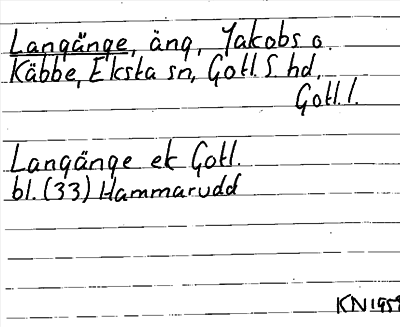 Langänge, äng, Jakobs o.
Käbbe, Eksta sn, Gotl. S. hd,
Gotl. l.
Langänge ek Gotl.
bl. (33) Hammarudd
KN 1959